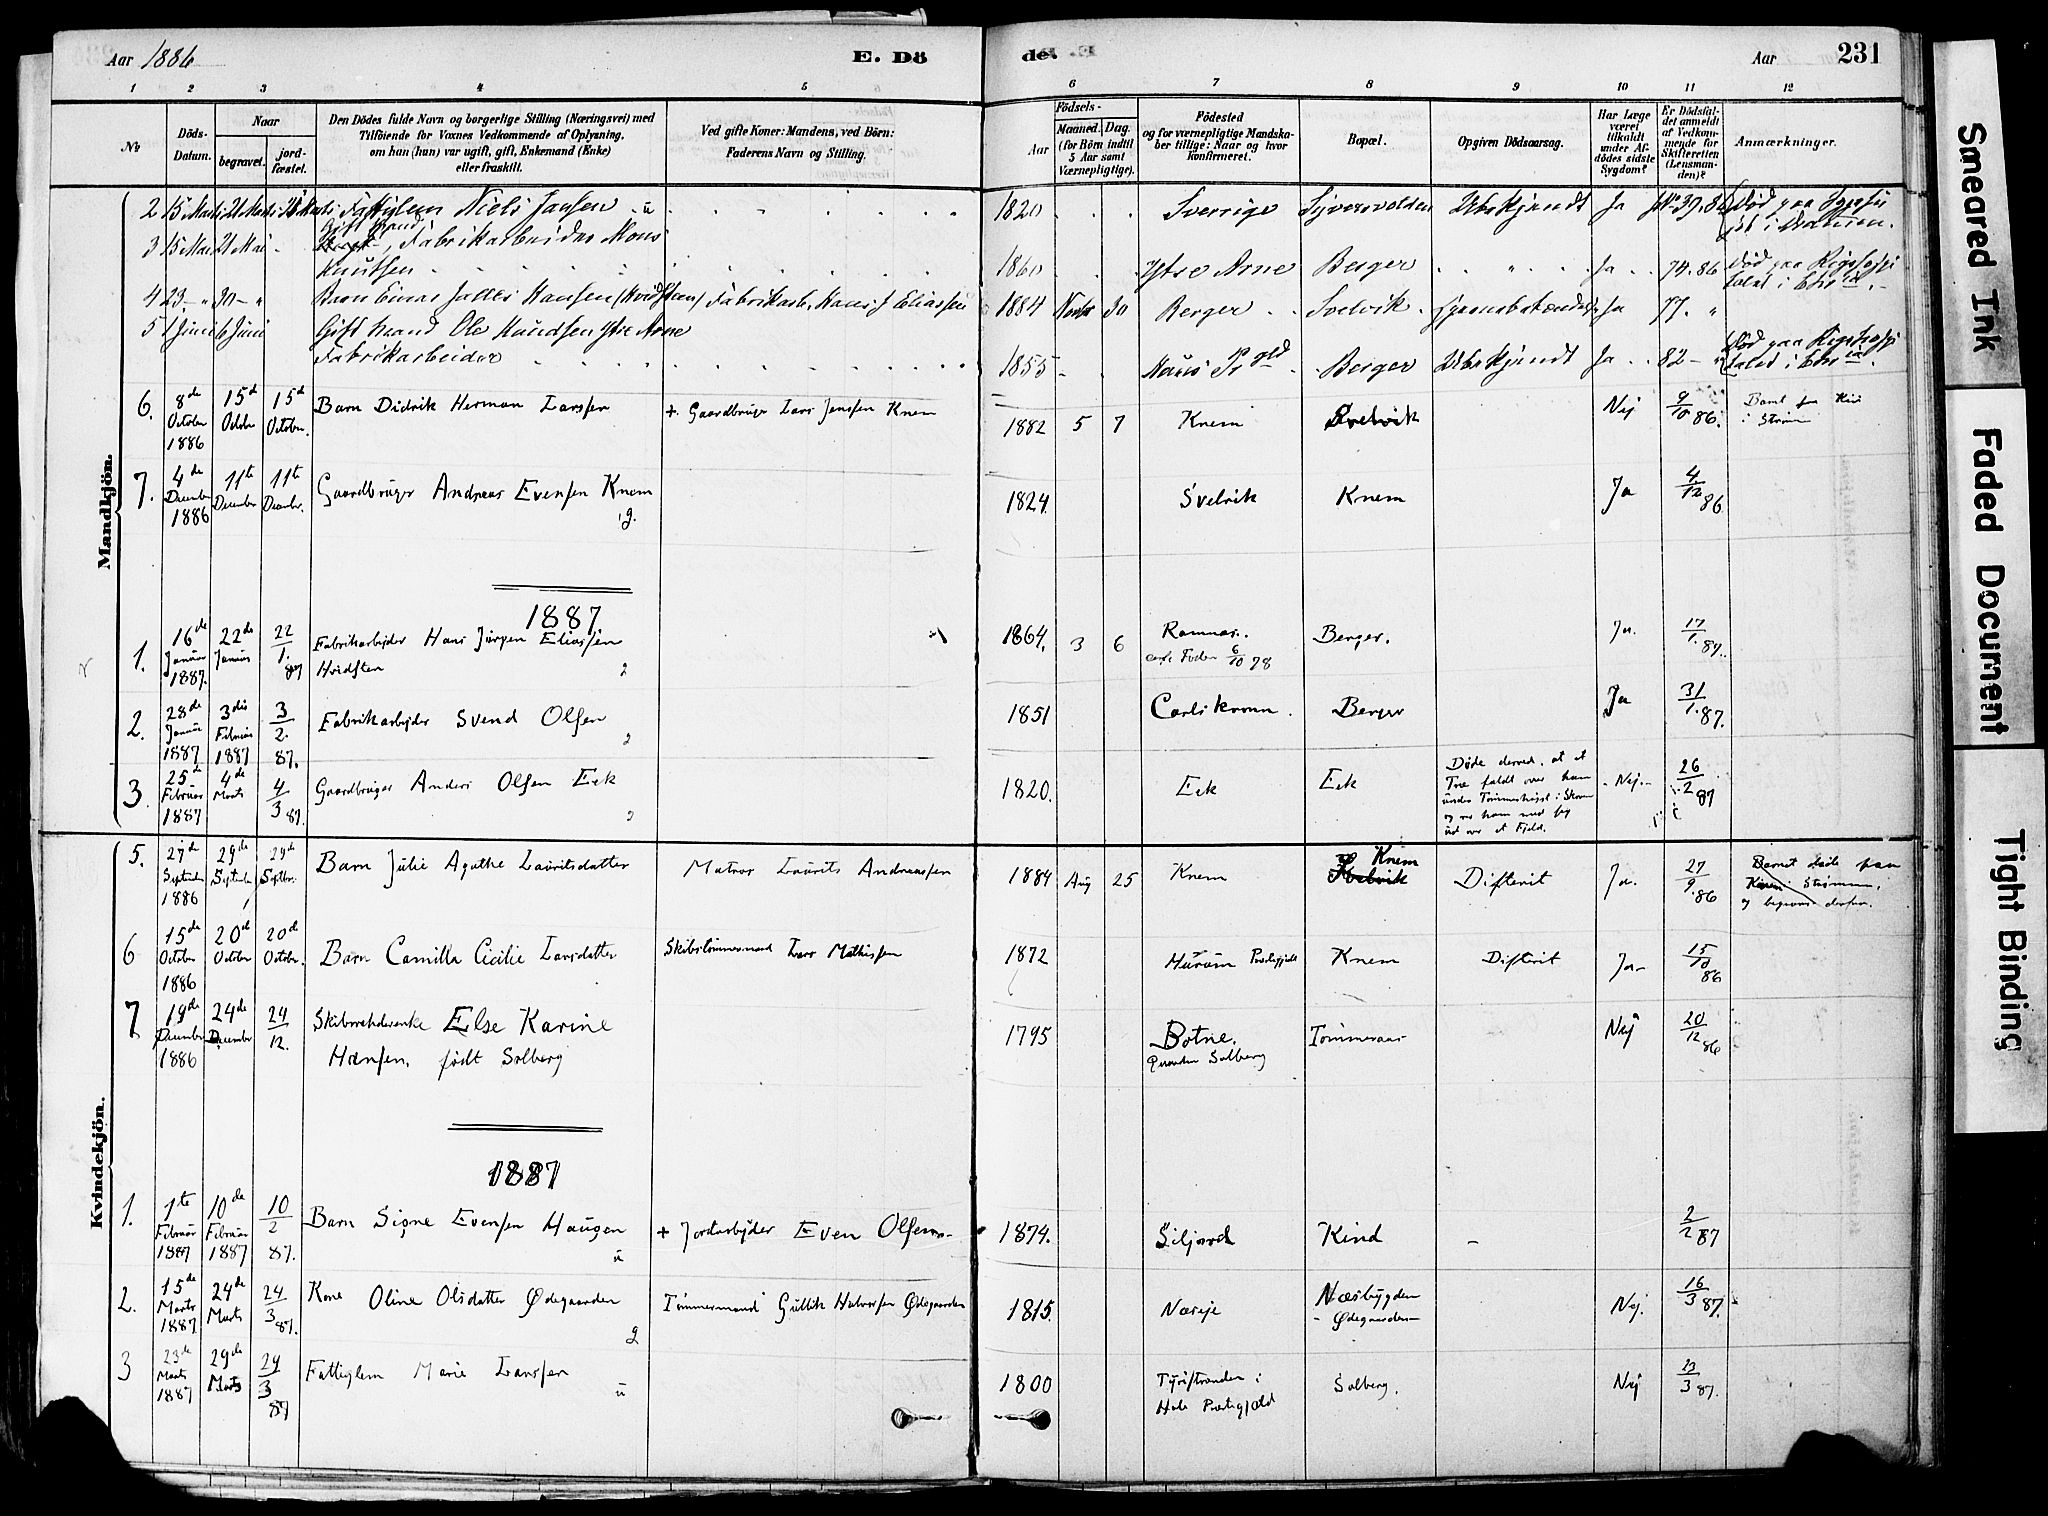 Aar 1886
E. Dö
de.
Aar
231
1 2 3 4 5 6 7 8 9 10 11 12
No
Döds-
Datum.
Naar
begravet.
jord-
fæstet.
Den Dödes fulde Navn og borgerlige Stilling (Næringsvei) med
Tilföiende for Voxnes Vedkommende af Oplysning,
om han (hun) var ugift, gift, Enkemand (Enke)
eller fraskilt.
Ved gifte Koner: Mandens, ved Börn:
Faderens Navn og Stilling.
Födsels-
Aar
Maaned. Dag.
(for Börn indtil
5 Aar samt
Værnepligtige).
Födested
og for værnepligtige Mandska-
ber tillige: Naar og hvor
konfirmeret.
Bopæl.
Opgiven Dödsaarsag.
Har Læge
været
tilkaldt
under Af-
dödes sidste
Sygdom?
Er Dödsfal-
det anmeldt
af Vedkom-
mende for
Skifteretten
(Lensman-
den)?
Anmærkninger.
Mandkjön.
2 15 Marts 21 Marts Fattiglem Niels Jansen u 1820 Sverrige Syversvolden Ubekjendt Ja No 37.86 Død paa
3 15 Mai 21 Mai Gift Mand, Fabrikarbeider Mons
Knutsen 1860 Ytre Arne Berger Ja 74.86 Død paa Rigshospi
talet i Chr ia.
4 23 - " 30 - " Barn Einar Hansen (Hvidsten) Fabrikarb. Hans J Eliassen 1884 Novbr 30 Berger Svelvik Ja 77. "
5 1 Juni 6 Juni Gift Mand Ole Knudsen Ytre Arne
Fabrikarbeider 1855 Haus Pr gld Berger Ubekjendt Ja 82 - Død paa Rigshospi
talet i Chr ia.
6. 8de October 1886 15d October 15d October. Barn Didrik Herman Larssen + Gaardbruger Lars Jenssen Knem 1882 5 7 Knem Svelvik Nej 9/10 86.
i Strøm
7. 4de December 1886 11te December 11te December. Gaardbruger Andreas Evensen Knem g. 1824. Svelvik Knem Ja 4/12 86
1887.
1. 16de Januar 1887. 22de Januar 22/1. 87 Fabrikarbejder Hans Jürgen Eliassen
Hvidsten 1864. 3 6 Ramnæs. 6/10 78 Berger. Ja. 17/1. 87.
2. 28de Januar 1887 3die Februar 1887 3/2. 87. Fabrikarbejder Svend Olsen 1851 Carlskrona. Berger Ja 31/1. 87.
3. 25de Februar 1887 4de Marts 4/3 87. Gaardbruger Anders Olsen Eek 1820. Eek Eek Døde derved, at et
Træ faldt over ham
under Tømmerhugst i Skoven
og rev ham med sig
ud over et Fjeld. Nej. 26/2 87
Kvindekjön.
5. 27de September 1886 29de September 29de Septbr. Barn Julie Agathe Lauritsdatter Matros Laurits Andreassen 1884 Aug 25 Knem Knem Svelvik Difterit Ja. 27/9. 86 Barnet døde paa
Strømm,
og begravet derfra.
6 15de October 1886 20d October 20d October. Barn Camilla Cicilie Larsdatter Skibstømmermand Lars Mathissen 1872 Hurum Præstegjeld Knem Difterit Ja 15/10 86
7 19de December 1886 24de December 24/12. Skibsrederenke Else Karine
Hansen, født Solberg 1795 Botne.
Solberg Tømmeraas Nej 20/12 86
1887
1. 1te Februar 1887 10de Februar 1887 10/2 87. Barn Signe Evensen Haugen u + Jordarbejder Even Olsen 1874. Siljord Kind - 2/2 87
2. 15de Marts 1887 24de Marts 24/3 87. Kone Oline Olsdatter Ødegaarden g Tømmermand Gullik Halvorsen Ødegaarden 1815. Næsbygden
- Ødegaarden - Nej. 16/3 87.
3 23de Marts 1887 29de Marts 29/3 87 Fattiglem Marie Larssen u 1800 Tyristranden i
Hole Præstegjæld Solberg. Nej 23/3 87.
Smeared Ink
Faded Document
Tight Binding